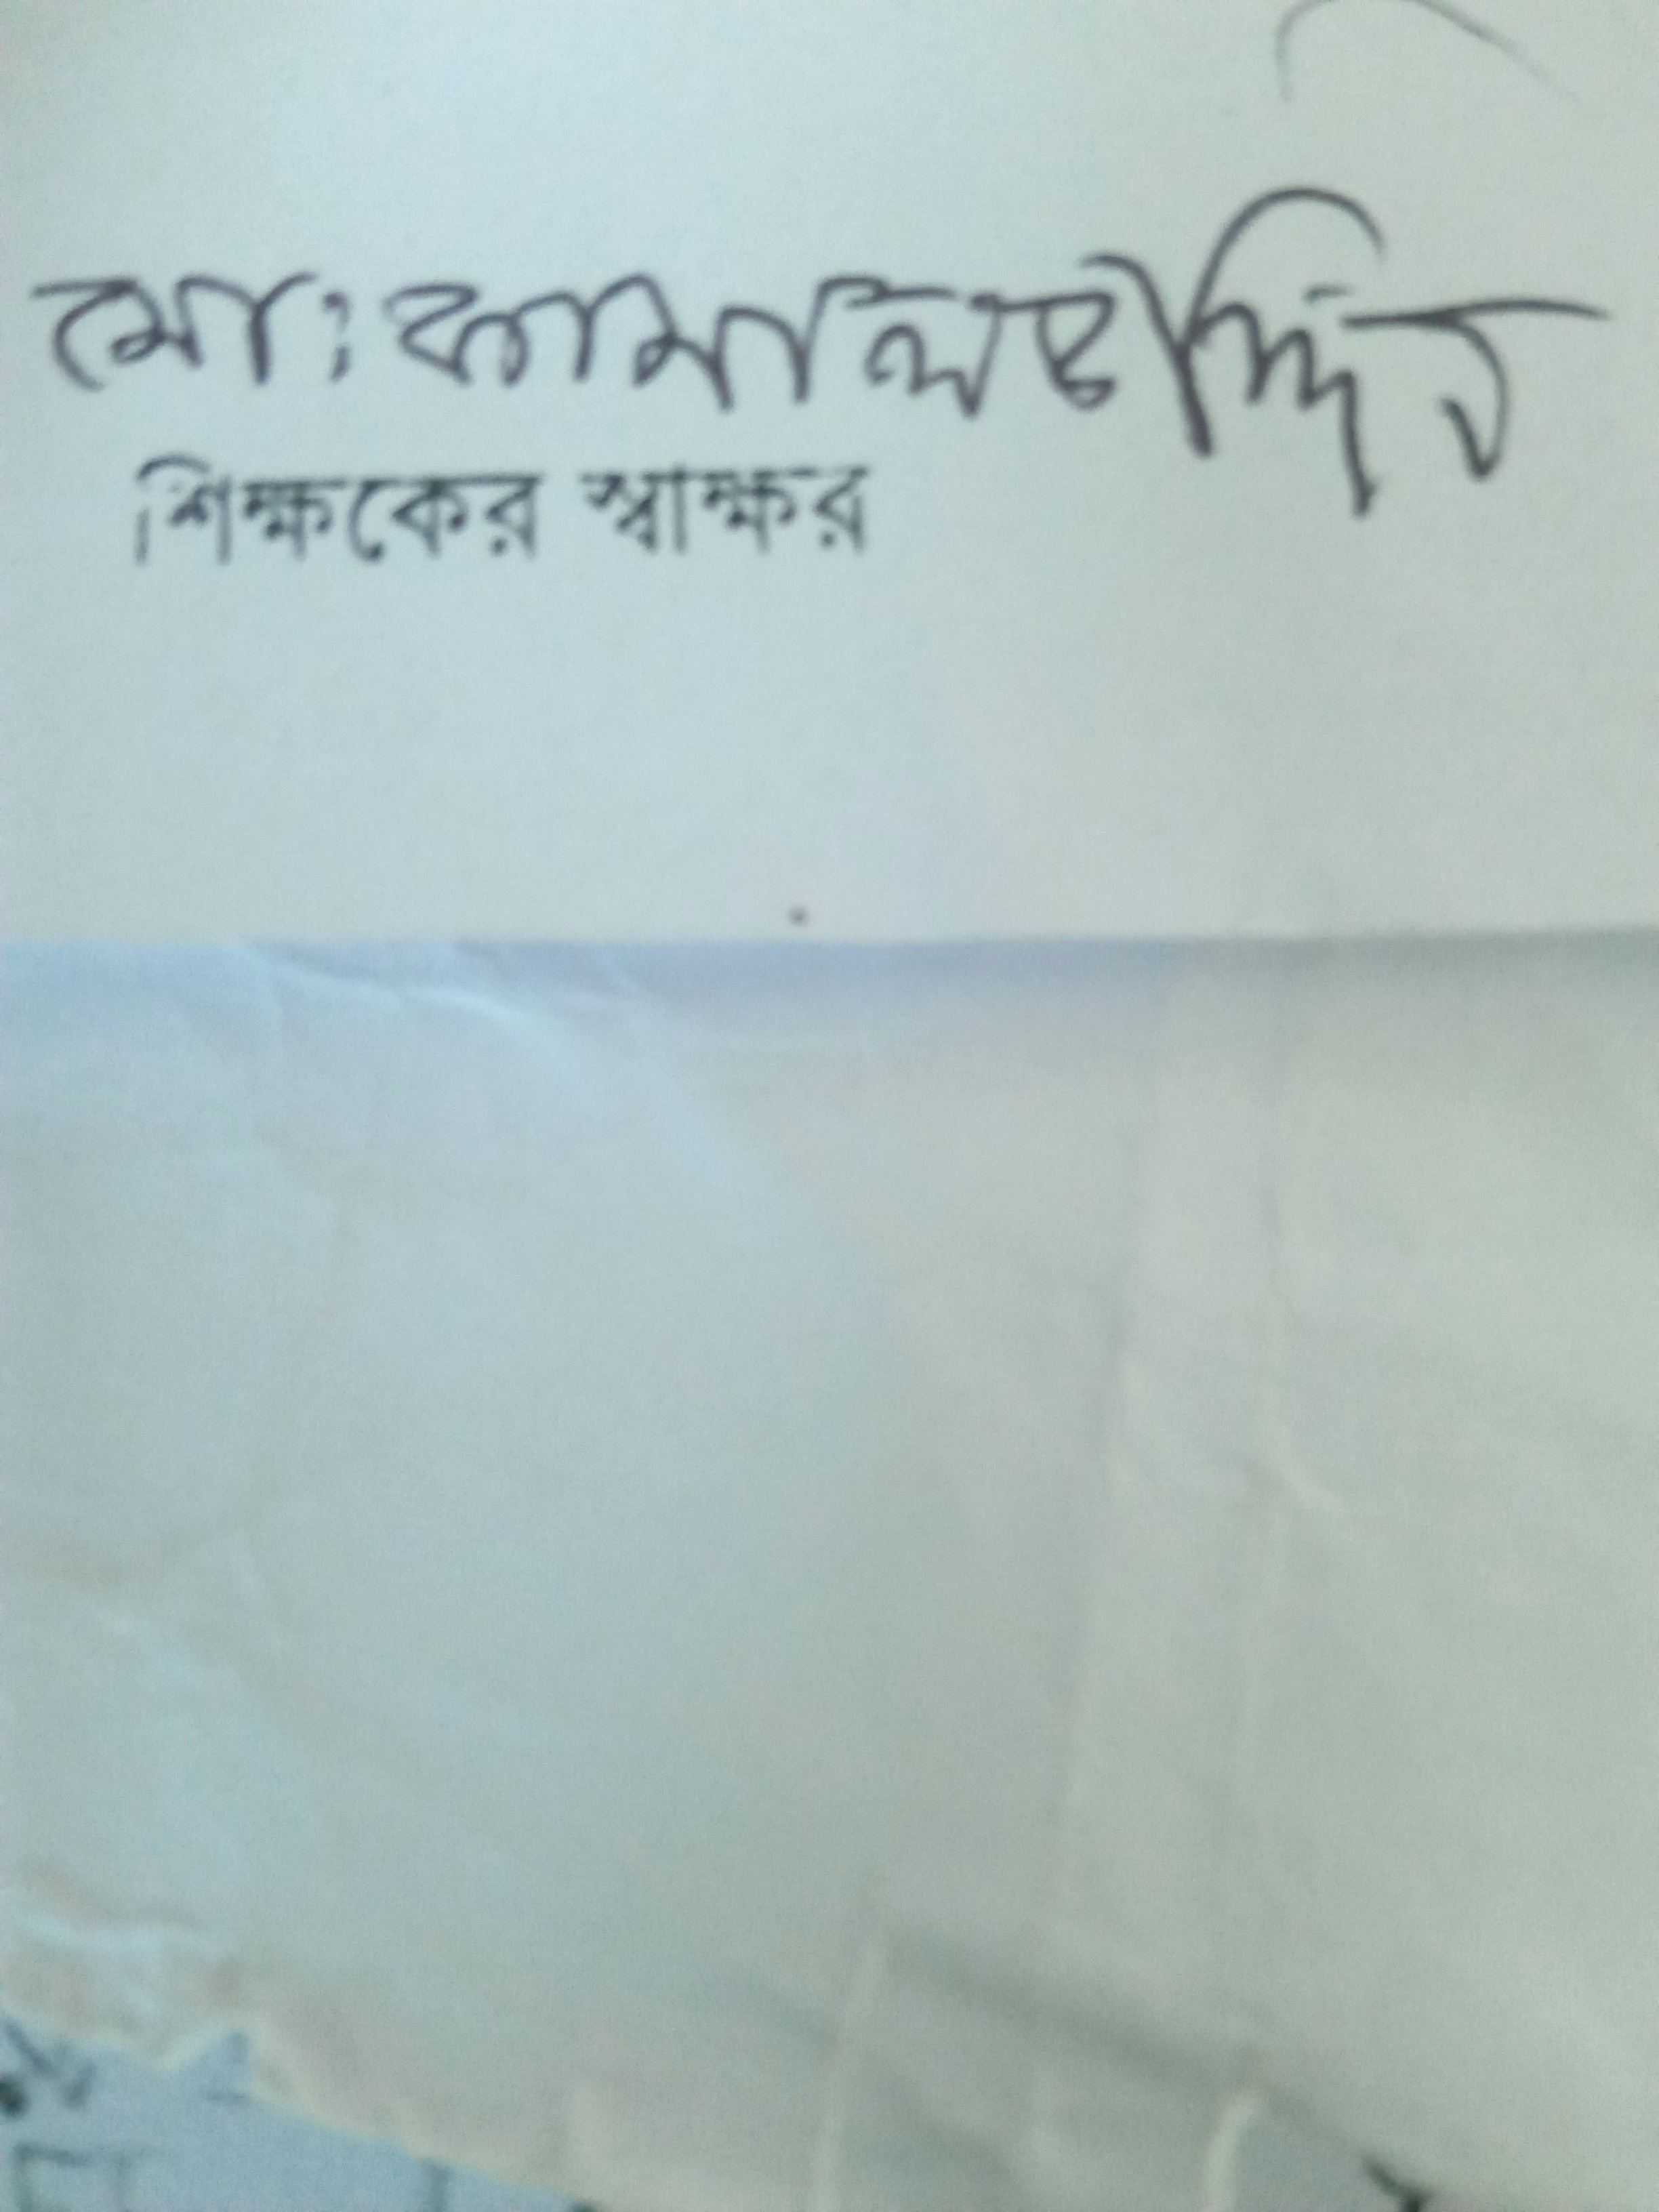 মো: কামাল উদ্দিন
শিক্ষকের স্বাক্ষর